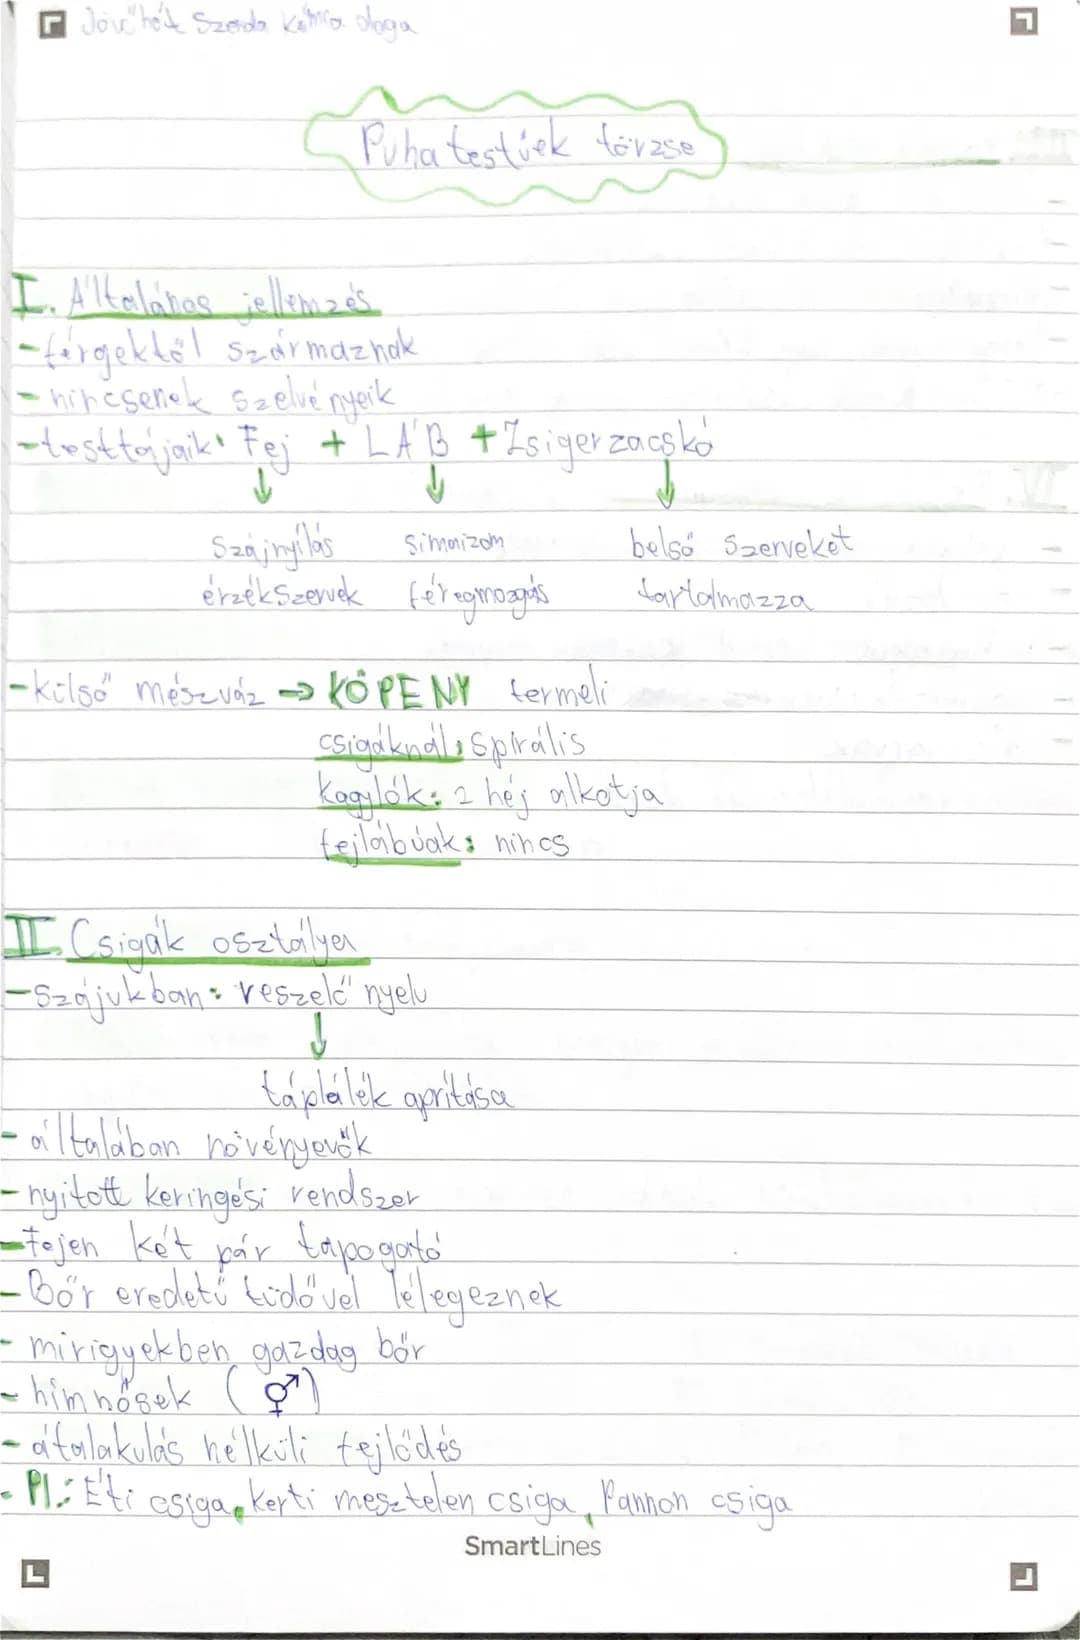 Jövő hét Szerda Kémia doga
Puhatestűek törzse
I. Általános jellemzés
- férgektől származnak
- nincsenek szelvényeik
- testtájaik: Fej + LÁB + Zsigerzacskó
↓ ↓ ↓
Szájnyílás simaizom belső szerveket
érzékszervek féregmozgás tartalmazza
- külső mészváz → KÖPENY termeli
csigáknál: spirális
kagylók: 2 héj alkotja
fejlábúak: nincs
II. Csigák osztálya
- szájukban: reszelő nyelv
↓
táplálék aprítása
- általában növényevők
- nyitott keringési rendszer
- fejen két pár tapogató
- Bőr eredetű tüdővel lélegeznek
- mirigyekben gazdag bőr
- hímnősek (⚥)
- átalakulás nélküli fejlődés
- Pl.: Éti csiga, kerti meztelen csiga, Pannon csiga
SmartLines